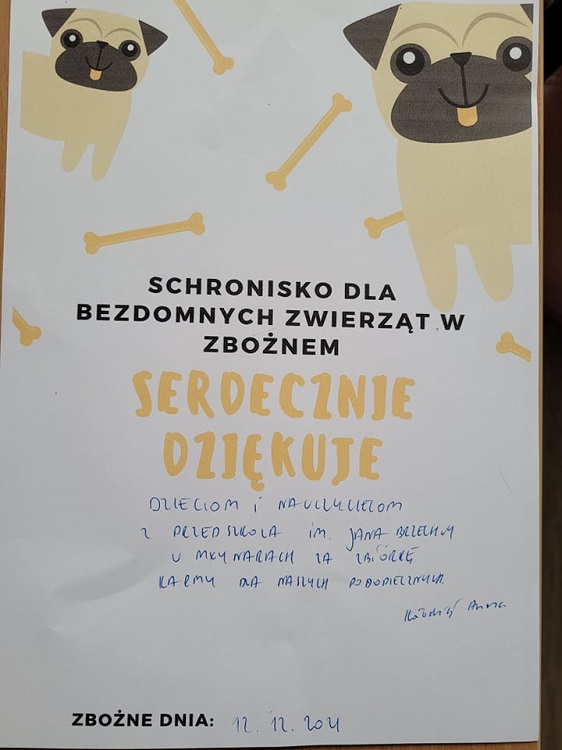 SCHRONISKO DLA
BEZDOMNYCH ZWIERZĄT W
ZBOŻNEM
SERDECZNIE
DZIĘKUJE
DZIECIOM i NAUCZYCIELOM
Z PRZEDSZKOLA im. JANA BRZECHWY
W MŁYNARACH ZA ZBIÓRKĘ
KARMY DLA NASZYCH PODOPIECZNYCH.
Anna
ZBOŻNE DNIA: 12. 12. 2021